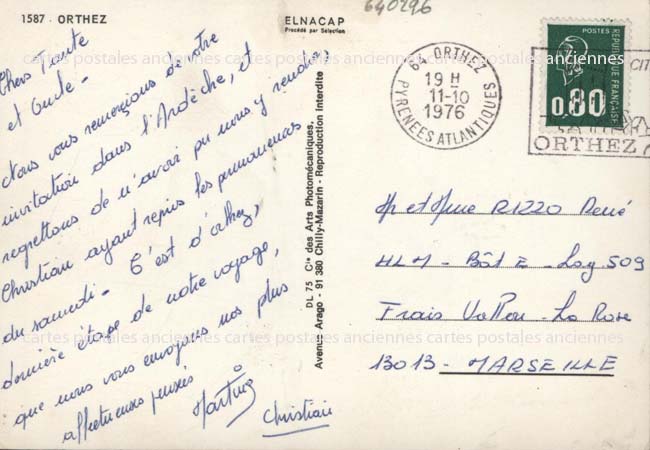 1587 - ORTHEZ
ELNACAP
Procédé par Sélection
640296
Chers Tante
et Oncle -
Nous vous remerçions de votre
invitation dans l'Ardèche, et
regrettons de n'avoir pu nous y rendre,
Christian ayant repris les permanences
du samedi - C'est d'orthez,
dernière étape de notre voyage,
que nous vous envoyons nos plus
affectueuses pensées
Martine
Christian
DL 75 Cie des Arts Photomécaniques,
Avenue Arago - 91 380 Chilly-Mazarin - Reproduction Interdite
64 ORTHEZ
19 H
11-10
1976
PYRENEES ATLANTIQUES
POSTES
REPUBLIQUE FRANÇAISE
0,80
CIT
ORTHEZ
M et Mme RIZZO René
HLM - Bât E - Log 509
Frais Vallon - La Rose
13013 - MARSEILLE
cartes postales anciennes cartes postales anciennes cartes postales anciennes
cartes postales anciennes cartes postales anciennes cartes postales anciennes